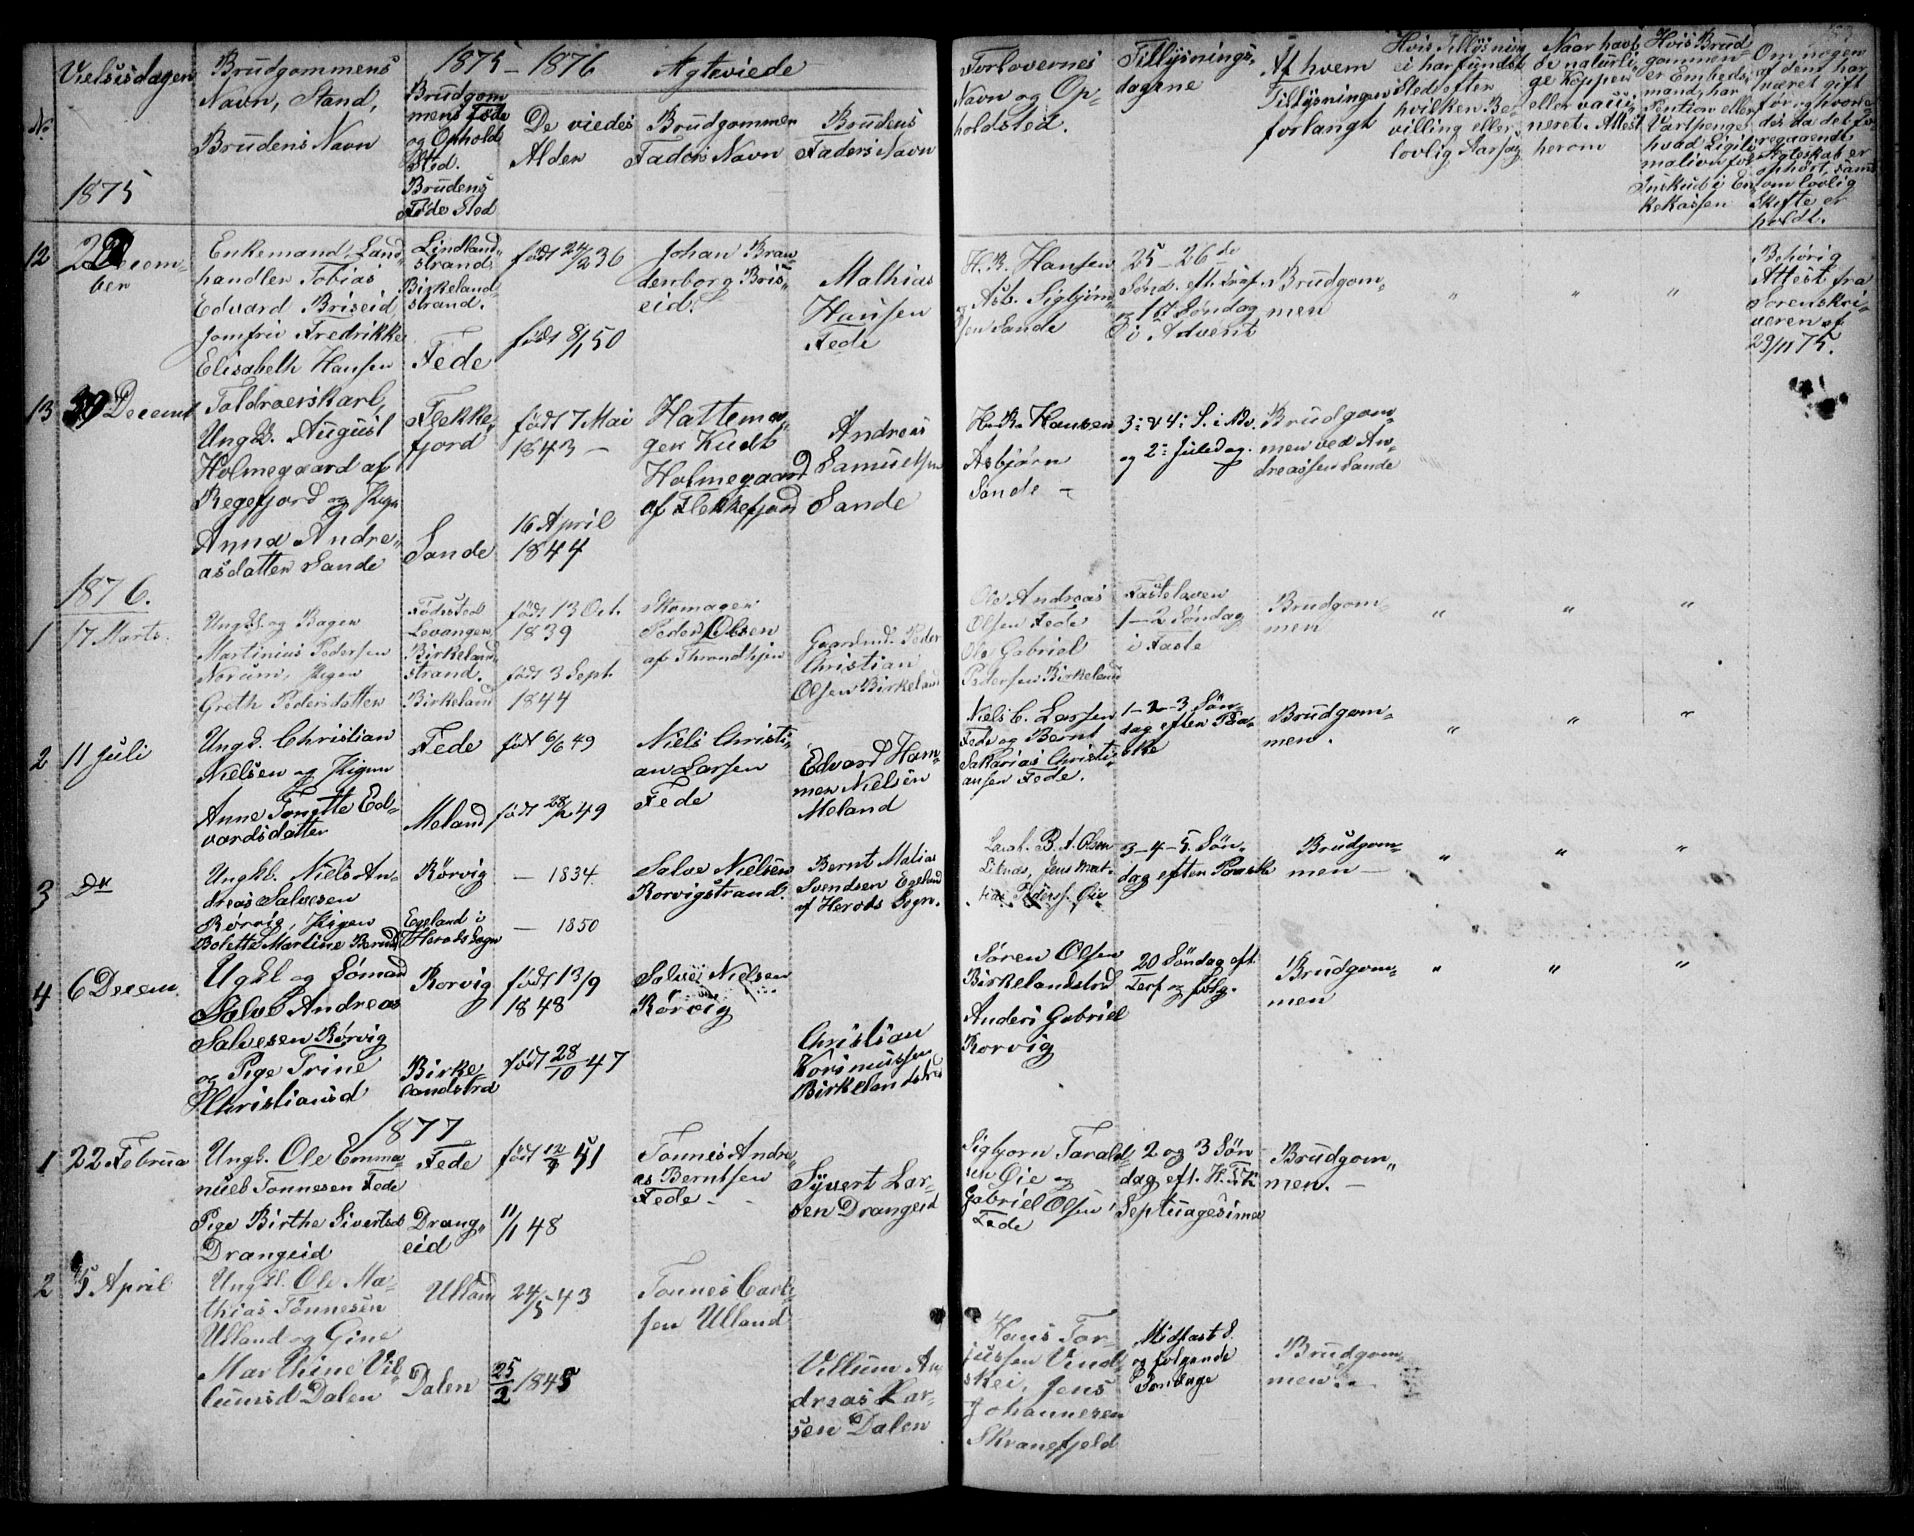 1875 – 1876 Ægteviede
No
Vielsesdagen
1875
Brudgommens
Navn, Stand,
Brudens Navn
Brudgom
mens Føde
og Ophold
Sted.
Brudens
Føde Sted
De viedes
Alder
Brudgommen
Faders Navn
Brudens
Faders Navn
Forlovernes
Navn og Op-
holdsted.
Tillysnings-
dagene
Af hvem
Tillysningen
forlangt
Hvis Tillysning
ei har fundet
Sted efter
hvilken Be-
villing eller
lovlig Aarsag
Naar havt
de naturli-
ge Kopper
eller vacci-
neret. Attest
herom
Hvis Brud
gommen
er Embeds-
mand, har
Pention eller
Vartpenge
hvad Ligiti-
mation for
Inskud i En
kekassen
Om nogen
af dem har
været gift
før, og hvorle
des da det fo-
regaaende
Ægteskab er
ophørt, samt
om lovlig
Skifte er
holdt.
12
Decem-
ber
Enkemand, Land-
handler Tobias
Edvard Briseid
Jomfru Fredrikke
Elisabeth Hansen
Lindland-
strand
Birkeland-
strand.
Fede
født 24/2 36
født 8/1 50
Johan Bran-
denborg Bris-
eid.
Mathias
Hansen
Fede
H. R. Hansen
og Asb. Sigbjørn-
sen Sande
25 – 26de
Sønd. eft. Træf.
og 1st Søndag
i Advent
Brudgom-
men
" " "
Behørig
Attest fra
Sorenskri-
veren af
29/11 75.
13 30 Decemb
Toldroerskarl,
Ungk. August
Holmegaard af
Regefjord og Pige
Anna Andre-
asdatter Sande
Flekke-
fjord
Sande
født 7 Mai
1843 –
16 April
1844
Hattema-
ger Kudt
Holmegaard
af Flekkefjord
Andreas
Samuelsen
Sande
H. R. Hansen
Asbjørn
Sande –
3: & 4: S. i Adv.
og 2: Juledag.
Brudgom-
men ved An-
dreassen Sande
"
1876.
1 17 Marts.
Ungk. og Bager
Martinius Pedersen
Norum, Pigen
Greth Pedersdatter
Fødested
Levanger
Birkeland-
strand.
Birkeland
født 13 Oct.
1839
født 3 Sept.
1844
Skomager
Peder Olsen
af Throndhjen
Gaardmd. Peder
Christian
Olsen Birkeland
Ole Andreas
Olsen Fede
Ole Gabriel
Pedersen Birkeland
Fastelaven
1 – 2 Søndag
i Faste
Brudgom-
men
" " "
2 11 Juli
Ungk. Christian
Nielsen og Pigen
Anne Tonette Ed-
vardsdatter
Fede
Meland
født 6/6 49
født 28/2 49
Niels Christi-
an Larsen
Fede
Edvard Ham-
mer Nielsen
Meland
Niels C. Larsen
Fede og Bernt
Sakarias Christi-
ansen Fede.
1–2–3. Søn-
dag efter Paa-
ske
Brudgom-
men.
" " "
3 Do
Ungkl. Niels An-
dreas Salvesen
Rørvig, Pigen
Bolette Martine Berntsd
Rørvig
Egeland i
Herads Sogn
– 1834.
– 1850
Salve Nielsen
Rørvigstrand.
Bernt Matias
Svendsen Egeland
af Herads Sogn.
B. A. Olsen
Litnæs, Jens Mat-
tias Peders. Øie
3–4–5. Søn-
dag efter Paaske
Brudgom-
men –
" " "
4 6 Decem.
Ugkl og Sømand
Salve Andreas
Salvesen Rørvig
og Pige Trine
Christiansd
Rørvig
Birke-
landstrd
født 13/9
1848
født 28/10 47
Salve Nielsen
Rørvig
Christian
Birkelandstrd
Søren Olsen
Birkelandstrd
Anders Gabriel
Rørvig
20 Søndag eft
Tref og følg.
Brudgom-
men
" " "
1877
1 22 Februa
Ungk. Ole Emma-
nuel Tonnesen Fede
Pige Birthe Sivertsd
Drangeid
Fede
Drang-
eid
født 51
11/1 48
Tonnes Andre-
as Berntsen
Fede –
Syvert Lar-
sen Drangeid
Sigbjorn Tarald-
sen Øie og
Gabriel Olsen
Fede
2 og 3 Søn
dag eft. H. Tr.
Septuagesima
Brudgom-
men. –
2 5 April
Ungkl. Ole Ma-
thias Tønnesen
Ulland og Gine
Marthine Vil-
lumsd Dalen
Ulland
Dalen
24/5 43
25/2 1845
Tonnes Carl-
sen Ulland
Villum An
dreas Lar-
sen Dalen
Hans Tor-
jussen Vind-
skei, Jens
Johannesen
Skranefjeld
Midfast S.
og følgende
Søndage
Brudgom-
men. –